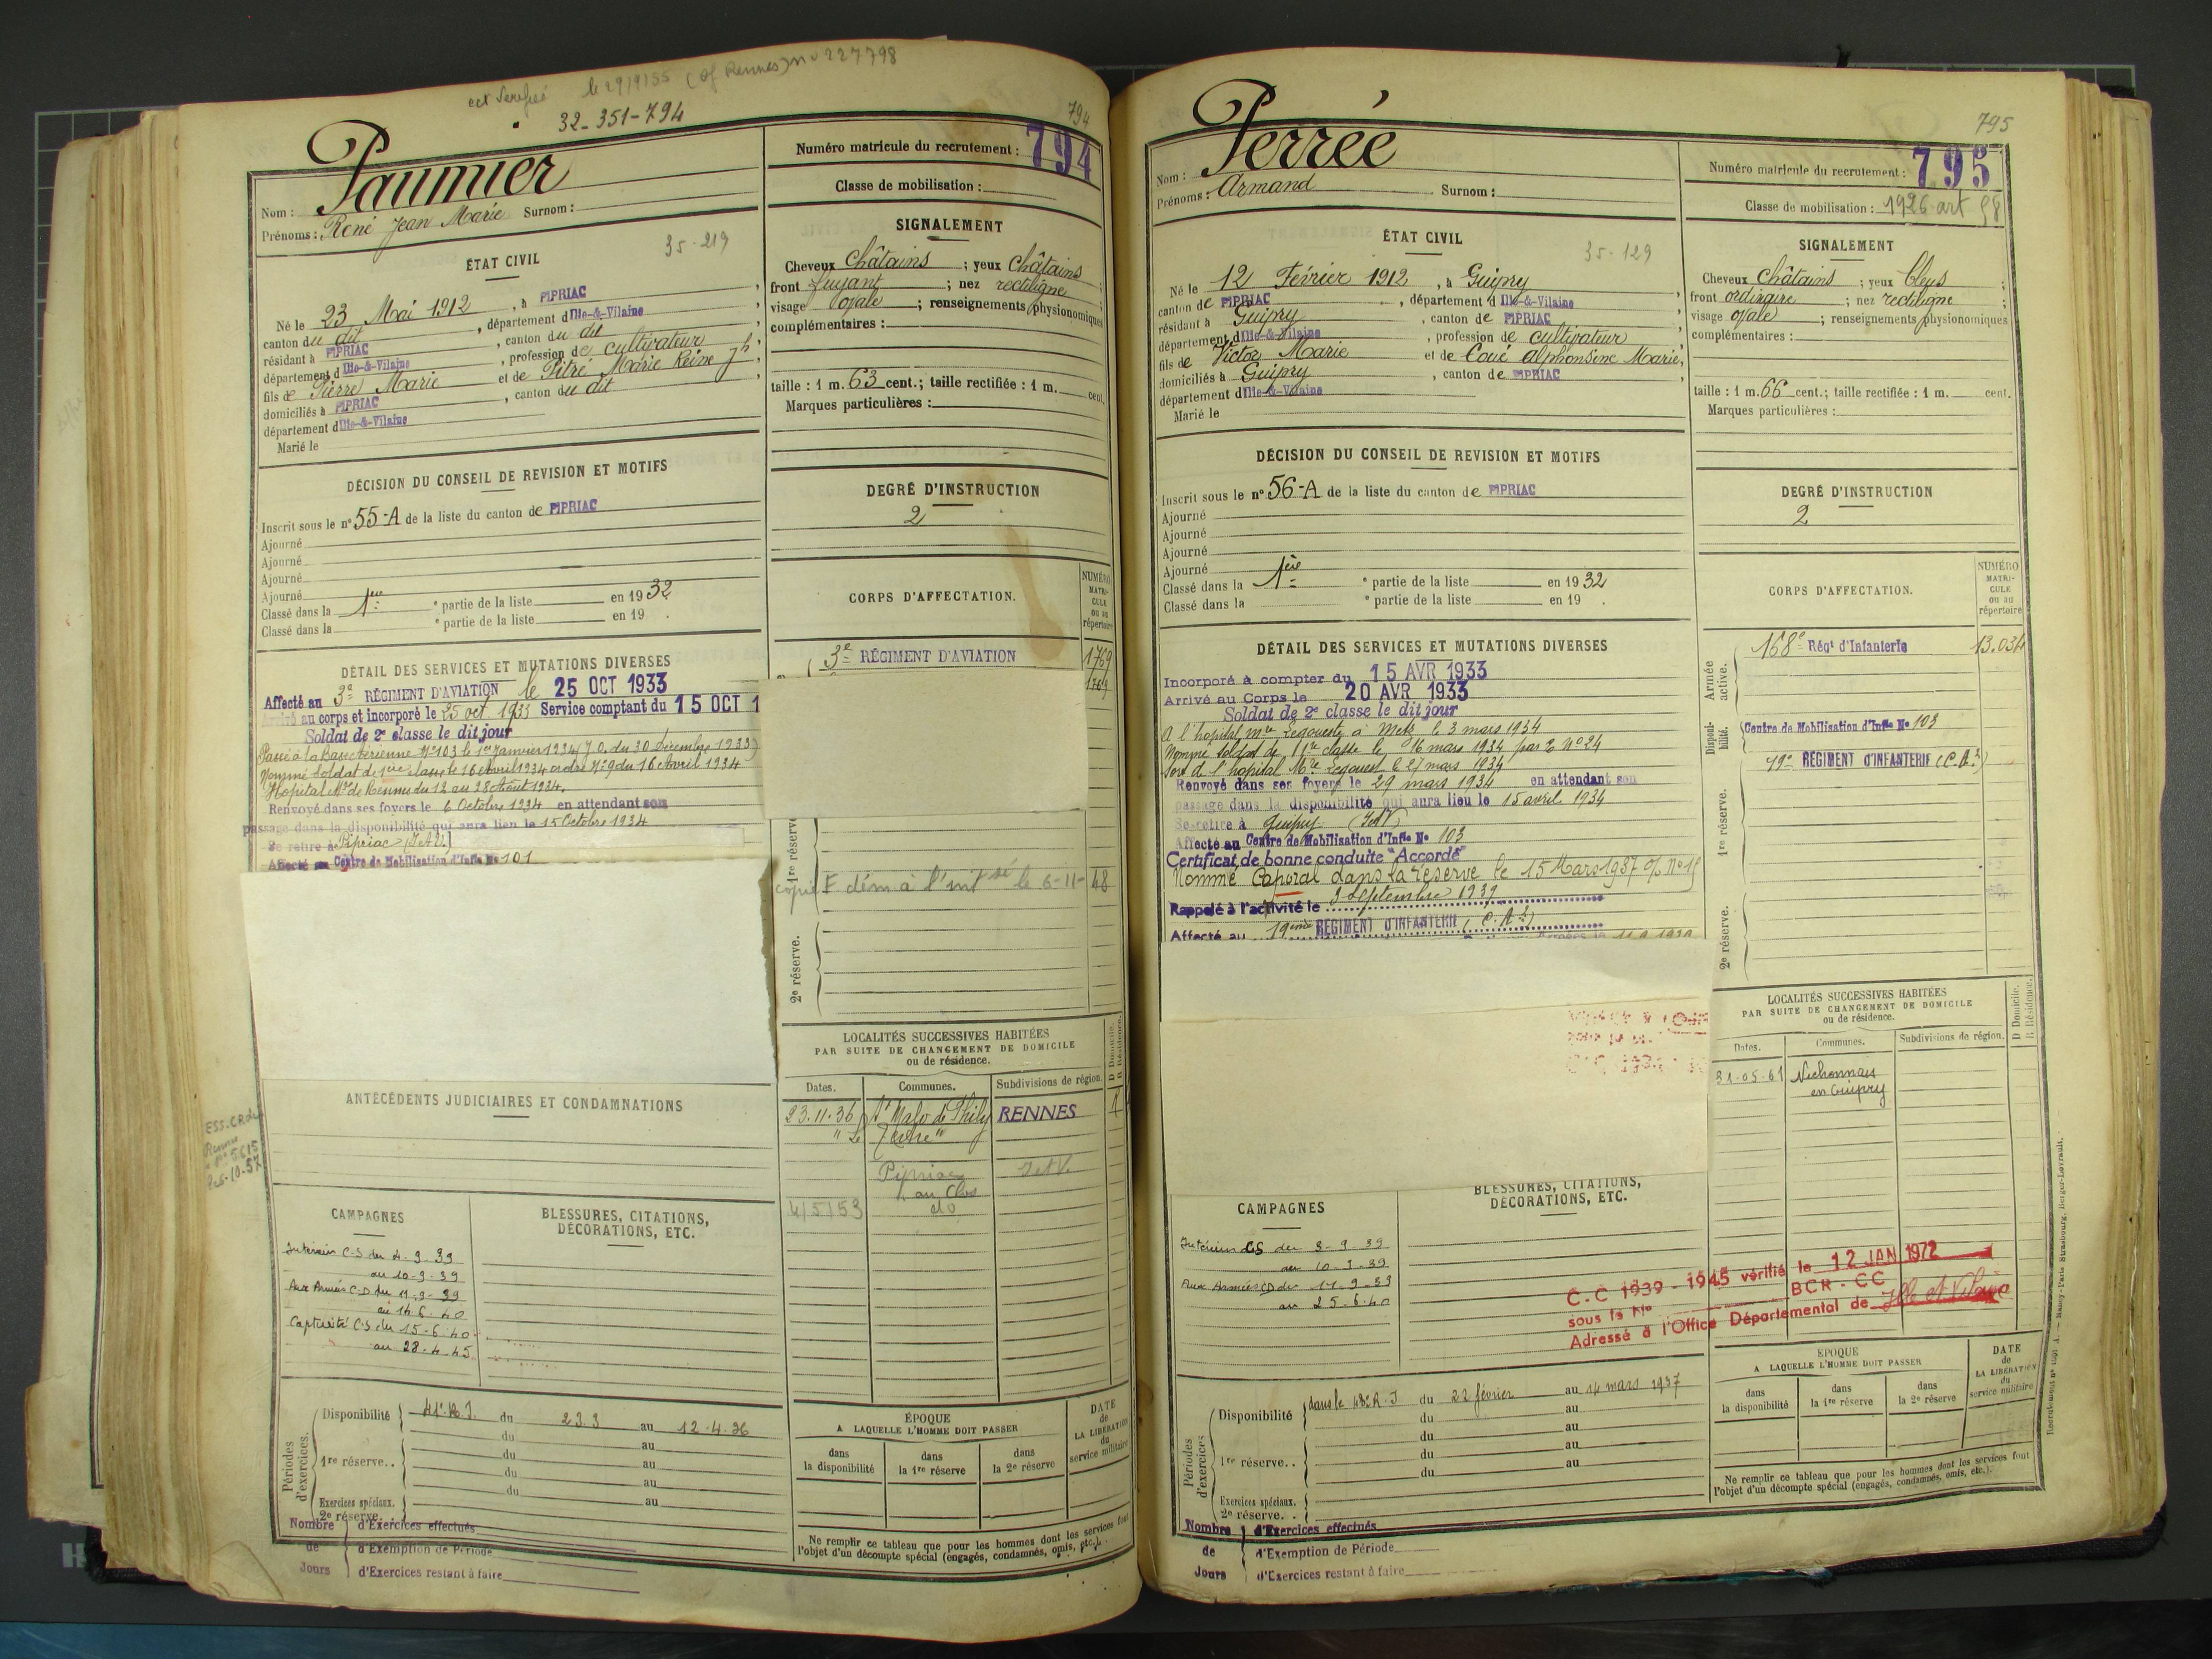 est vérifié le 29/9/55 (Of Rennes) no 227798
32-351-794
794
Paumier
Nom :
Prénoms : René Jean Marie Surnom :
ÉTAT CIVIL
35-219
Né le 23 Mai 1912, à PIPRIAC,
canton du dit, département d'Ille-&-Vilaine,
résidant à PIPRIAC, canton du dit
département d'Ille-&-Vilaine, profession de cultivateur
fils de Pierre Marie et de Pitré Marie Reine Jh,
domiciliés à PIPRIAC, canton du dit,
département d'Ille-&-Vilaine
Marié le
DÉCISION DU CONSEIL DE REVISION ET MOTIFS
Inscrit sous le n° 55-A de la liste du canton de PIPRIAC
Ajourné
Ajourné
Ajourné
Ajourné
Classé dans la 1ère e partie de la liste en 1932
Classé dans la e partie de la liste en 19 .
DÉTAIL DES SERVICES ET MUTATIONS DIVERSES
Affecté au 3e RÉGIMENT D'AVIATION le 25 OCT 1933
Arrivé au corps et incorporé le 25 oct. 1933 Service comptant du 15 OCT 1
Soldat de 2e classe le dit jour
Passé à la Base Aérienne N°103 le 1er Janvier 1934 (J.O. du 30 Décembre 1933)
Nommé Soldat de 1ère classe le 16 Avril 1934 ordre N°9 du 16 Avril 1934
Hopital Mre de Rennes du 12 au 28 Août 1934.
Renvoyé dans ses foyers le 6 Octobre 1934 en attendant son
passage dans la disponibilité qui aura lieu le 15 Octobre 1934
Se retire à Pipriac (I.&V.)
Affecté au Centre de Mobilisation d'Infie No 101
ANTÉCÉDENTS JUDICIAIRES ET CONDAMNATIONS
ESS. CR de
Rennes
N° 5615
10-57
CAMPAGNES
Intérieur C-S du 4-9-39
au 10-9-39
Aux Armées C-D du 11-9-39
au 14-6-40
Captivité C-S du 15-6-40
au 28-4-45
BLESSURES, CITATIONS,
DÉCORATIONS, ETC.
Périodes d'exercices.
Disponibilité 41e R.I. du 23.3 au 12-4-36
du au
1re réserve.. du au
du au
du au
Exercices spéciaux.
2e réserve.
Nombre de Jours
d'Exercices effectués
d'Exemption de Période
d'Exercices restant à faire
Numéro matricule du recrutement : 794
Classe de mobilisation :
SIGNALEMENT
Cheveux Châtains ; yeux Châtains
front fuyant ; nez rectiligne
visage ovale ; renseignements physionomiques
complémentaires :
taille : 1 m. 63 cent.; taille rectifiée : 1 m. cent.
Marques particulières :
DEGRÉ D'INSTRUCTION
2
CORPS D'AFFECTATION.
NUMÉRO MATRI- CULE ou au répertoire
3e RÉGIMENT D'AVIATION 1769
1769
1re réserve
copie E dém à l'intsé le 6-11-48
2e réserve.
LOCALITÉS SUCCESSIVES HABITÉES
PAR SUITE DE CHANGEMENT DE DOMICILE
ou de résidence.
D Domicile.
R Résidence.
Dates. Communes. Subdivisions de région.
23.11.36 St Malo de Phily RENNES R
" Le Tertre "
Pipriac I et V.
au Clos
4/5/53
ÉPOQUE
A LAQUELLE L'HOMME DOIT PASSER
DATE de LA LIBÉRATION du service militaire
dans la disponibilité
dans la 1re réserve
dans la 2e réserve
Ne remplir ce tableau que pour les hommes dont les services font
l'objet d'un décompte spécial (engagés, condamnés, omis, etc.).
795
Perrée
Nom :
Prénoms : Armand Surnom :
ÉTAT CIVIL
35-129
Né le 12 Février 1912, à Guipry,
canton de PIPRIAC, département d'Ille-&-Vilaine
résidant à Guipry, canton de PIPRIAC,
département d'Ille-&-Vilaine, profession de cultivateur
fils de Victor Marie et de Coué Alphonsine Marie,
domiciliés à Guipry, canton de PIPRIAC,
département d'Ille-&-Vilaine
Marié le
DÉCISION DU CONSEIL DE REVISION ET MOTIFS
Inscrit sous le n° 56-A de la liste du canton de PIPRIAC
Ajourné
Ajourné
Ajourné
Ajourné
Classé dans la 1ère e partie de la liste en 1932
Classé dans la e partie de la liste en 19 .
DÉTAIL DES SERVICES ET MUTATIONS DIVERSES
Incorporé à compter du 15 AVR 1933
Arrivé au Corps le 20 AVR 1933
Soldat de 2e classe le dit jour
A l'hopital Mre Legouest à Metz le 3 mars 1934
Nommé soldat de 1re classe le 16 mars 1934 par D n°24
Sort de l'hopital Mre Legouest le 27 mars 1934
Renvoyé dans ses foyers le 29 mars 1934 en attendant son
passage dans la disponibilité qui aura lieu le 15 avril 1934
Se retire à Guipry (I et V)
Affecté au Centre de Mobilisation d'Infie No 103
Certificat de bonne conduite "Accordé"
Nommé Caporal dans la réserve le 15 Mars 1937
Rappelé à l'activité le 3 Septembre 1939
Affecté au 19ème REGIMENT D'INFANTERIE (C.A.2)
CAMPAGNES
Intérieur CS du 3-9-39
au 10-9-39
Aux Armées CD du 11-9-39
au 25-6-40
BLESSURES, CITATIONS,
DÉCORATIONS, ETC.
C.C 1939-1945 vérifié le 12 JAN 1972
sous le No BCR-CC
Adressé à l'Office Départemental de Ille et Vilaine
Périodes d'exercices
Disponibilité dans le 48e R.I du 22 février au 14 mars 1937
du au
du au
1re réserve.. du au
du
Exercices spéciaux.
2e réserve. .
Nombre de Jours
d'Exercices effectués
d'Exemption de Période
d'Exercices restant à faire
Numéro matricule du recrutement : 795
Classe de mobilisation : 1926 art 58
SIGNALEMENT
Cheveux Châtains ; yeux bleus ;
front ordinaire ; nez rectiligne ;
visage ovale ; renseignements physionomiques
complémentaires :
taille : 1 m. 66 cent.; taille rectifiée : 1 m. cent.
Marques particulières :
DEGRÉ D'INSTRUCTION
2
CORPS D'AFFECTATION.
NUMÉRO MATRI- CULE ou au répertoire
Armée active.
168e Régt d'Infanterie 13.034
Disponi- bilité.
Centre de Mobilisation d'Infie No 103
19e REGIMENT D'INFANTERIE (C.A.2)
1re réserve.
2e réserve.
LOCALITÉS SUCCESSIVES HABITÉES
PAR SUITE DE CHANGEMENT DE DOMICILE
ou de résidence.
D Domicile.
R Résidence.
Dates. Communes. Subdivisions de région.
31-05-61
en Guipry
ÉPOQUE
A LAQUELLE L'HOMME DOIT PASSER
DATE de LA LIBÉRATION du service militaire
dans la disponibilité
dans la 1re réserve
dans la 2e réserve
Ne remplir ce tableau que pour les hommes dont les services font
l'objet d'un décompte spécial (engagés, condamnés, omis, etc.).